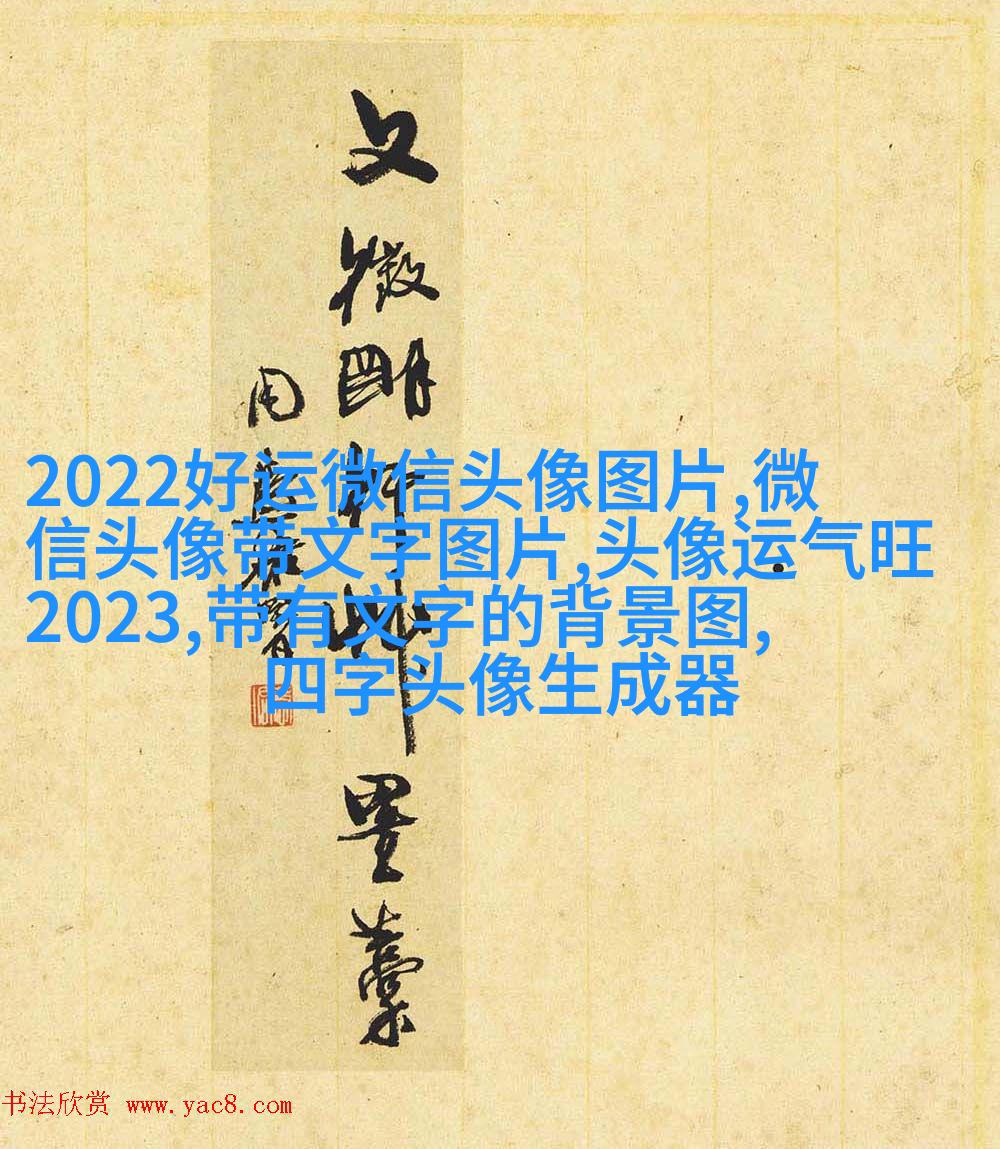 文徵明詩
墨藁
2022好运微信头像图片,微
信头像带文字图片,头像运气旺
2023,带有文字的背景图,
四字头像生成器
书法欣赏 www.yac8.com